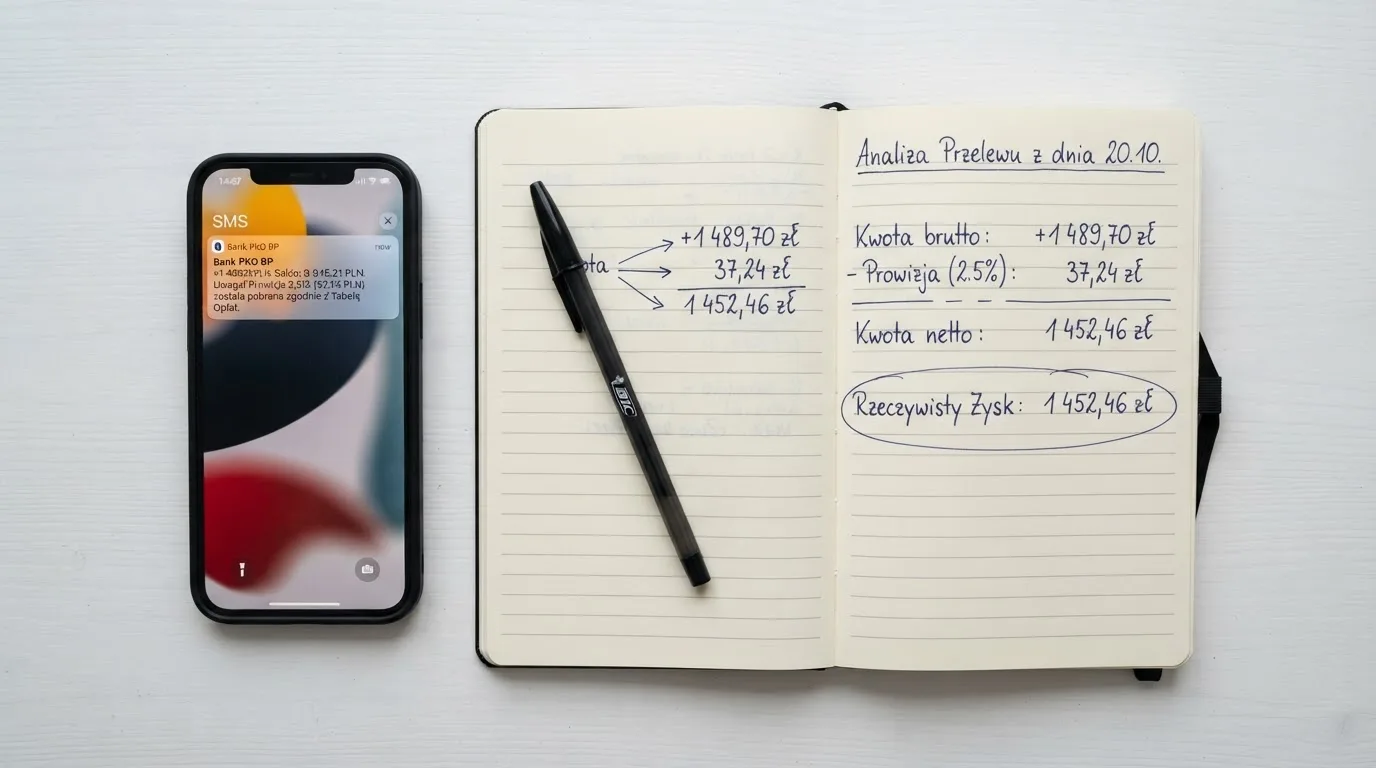 SMS
Bank PKO BP
now
Bank PKO BP
Saldo: PLN.
Uwaga!
została pobrana zgodnie z Tabelą
Opłat.
+1 489,70 zł
37,24 zł
1 452,46 zł
BIC
Analiza Przelewu z dnia 20.10.
Kwota brutto: +1 489,70 zł
- Prowizja (2.5%): 37,24 zł
Kwota netto: 1 452,46 zł
Rzeczywisty Zysk: 1 452,46 zł